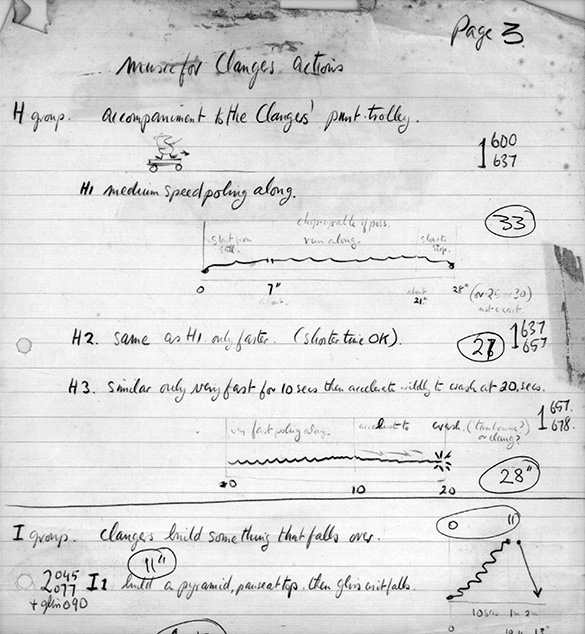 Page 3
Music for Clangers actions
H group. accompaniment to the Clangers' punt-trolley.
1 600
637
H1 medium speed poling along.
33"
chop-up-able if poss.
start from still. run along. slow to stop.
0 7" about. about 21" 28" (or 25 or 30)
H2. same as H1 only faster. (shorter time OK).
27
1 637
657
H3. Similar only very fast for 10 secs then accelerate wildly to crash at 20 secs.
1 657.
678.
very fast poling along. accelerate to crash. (tambourine?)
or clang?
0 10 20
28"
I group. Clangers build something that falls over.
0 11"
11"
2 045
077
+ gliss 090
I1 build a pyramid, pause at top. then gliss as it falls.
10 secs 1m 2m